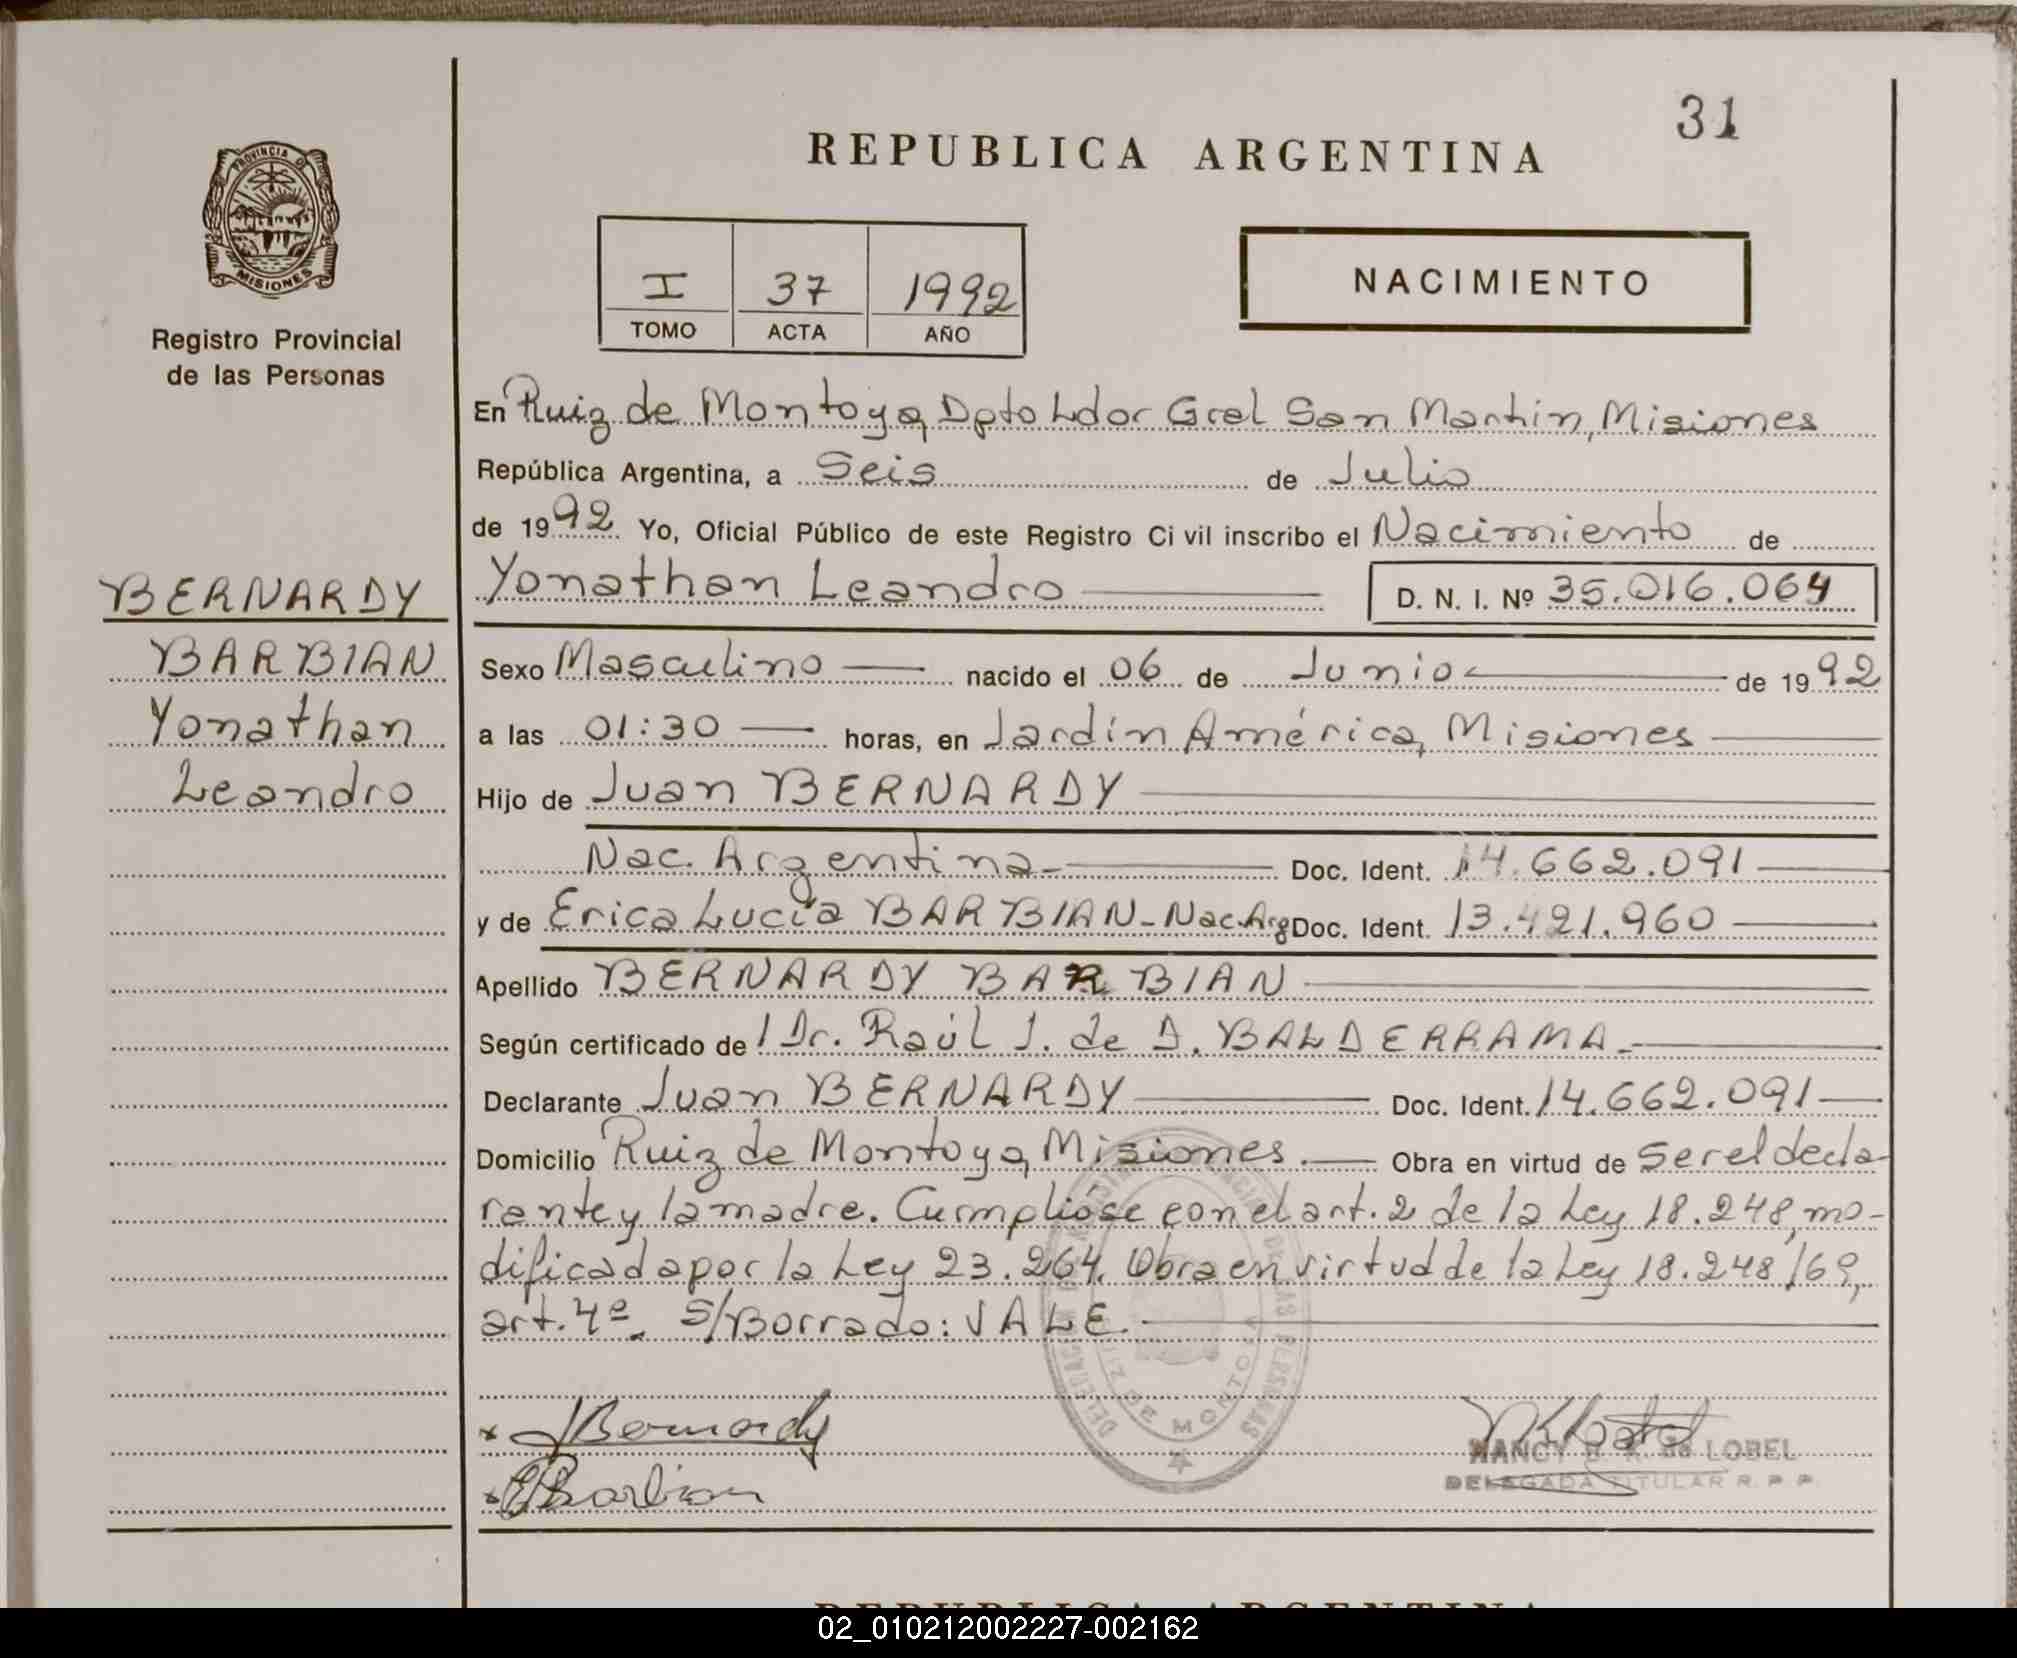 31
REPUBLICA ARGENTINA
PROVINCIA DE
MISIONES
Registro Provincial
de las Personas
I 37 1992
TOMO ACTA AÑO
NACIMIENTO
En Ruiz de Montoya, Dpto Ldor Gral San Martín, Misiones
República Argentina, a Seis de Julio
de 1992. Yo, Oficial Público de este Registro Civil inscribo el Nacimiento de
Yonathan Leandro D. N. I. Nº 35.016.064
BERNARDY
BARBIAN
Yonathan
Leandro
Sexo Masculino nacido el 06 de Junio de 1992
a las 01:30 horas, en Jardín América, Misiones
Hijo de Juan BERNARDY
Nac. Argentina Doc. Ident. 14.662.091
y de Erica Lucía BARBIAN - Nac. Arg Doc. Ident. 13.421.960
Apellido BERNARDY BARBIAN
Según certificado del Dr. Raúl J. de D. BALDERRAMA.
Declarante Juan BERNARDY Doc. Ident. 14.662.091
Domicilio Ruiz de Montoya, Misiones. Obra en virtud de ser el decla-
rante y la madre. Cumplióse con el art. 2 de la Ley 18.248, mo-
dificada por la Ley 23.264. Obra en virtud de la Ley 18.248/69,
art. 4º. S/Borrado: VALE.
DELEGACION REGISTRO PROVINCIAL DE LAS PERSONAS
RUIZ DE MONTOYA
JBernardy
EBarbian
NANCY B. K. de LOBEL
DELEGADA TITULAR R. P. P.
REPUBLICA ARGENTINA
02_010212002227-002162